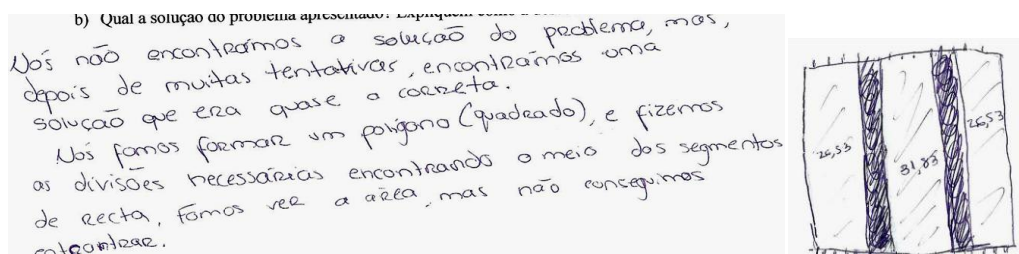 b) Qual a solução do problema apresentado? Expliquem como a
Nós não encontrámos a solução do problema, mas,
depois de muitas tentativas, encontrámos uma
solução que era quase a correta.
Nós fomos formar um polígono (quadrado), e fizemos
as divisões necessárias encontrando o meio dos segmentos
de recta, fomos ver a área, mas não conseguimos
encontrar.
26,53
31,83
26,53